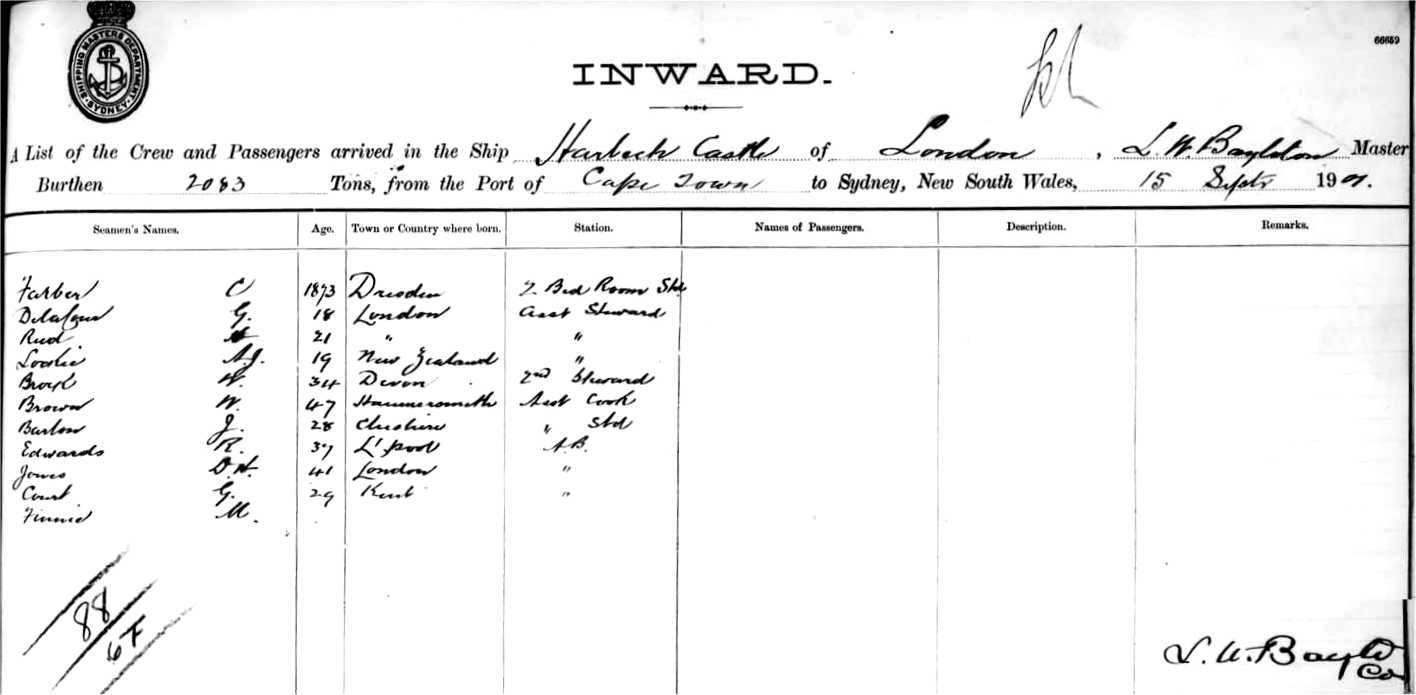 SHIPPING MASTERS DEPARTMENT SYDNEY
66659
INWARD.
A List of the Crew and Passengers arrived in the Ship Harlech Castle of London, L. W. Master
Burthen 2083 Tons, from the Port of Cape Town to Sydney, New South Wales, 15 Septr 190
Seamen's Names. Age. Town or Country where born. Station. Names of Passengers. Description. Remarks.
Farber C 1873 Dresden 2 Bed Room Std
G. 18 London Asst Steward
21 " "
A.J. 19 New Zealand "
W. 34 Devon 2nd Steward
Brown W. 47 Hammersmith Asst Cook
Barlow J. 28 Cheshire " Std
Edwards R. 37 L'pool A.B.
Jones D.H. 41 London "
Court G. 29 Kent "
Finnie M.
88
6F